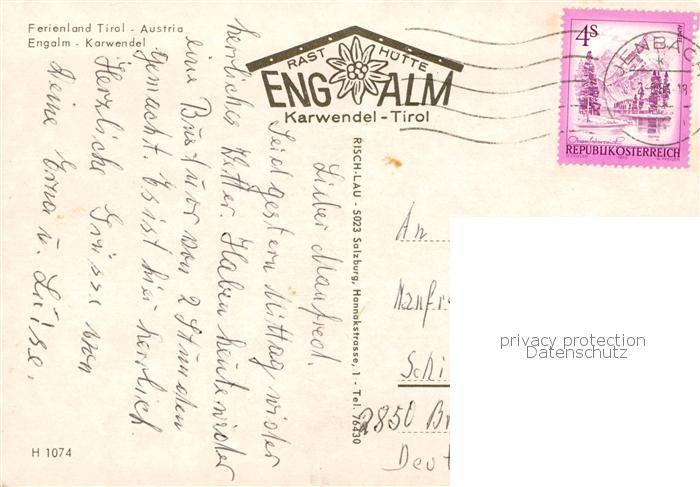 Ferienland Tirol - Austria
Engalm - Karwendel
RAST HÜTTE
ENG ALM
Karwendel-Tirol
4S
JENBACH
REPUBLIK ÖSTERREICH
RISCH-LAU - 5023 Salzburg, Hannakstrasse, 1 - Tel. 76430
Lieber Manfred.
Seid gestern Mittag wieder
herrliches Wetter. Haben heute wieder
eine Bustour von 2 Stunden
gemacht. Es ist hier herrlich.
Herzliche Grüsse von
Deine Erna u. Luise.
An
Manfr
Schi
2850 Br
Deut
privacy protection
Datenschutz
H 1074